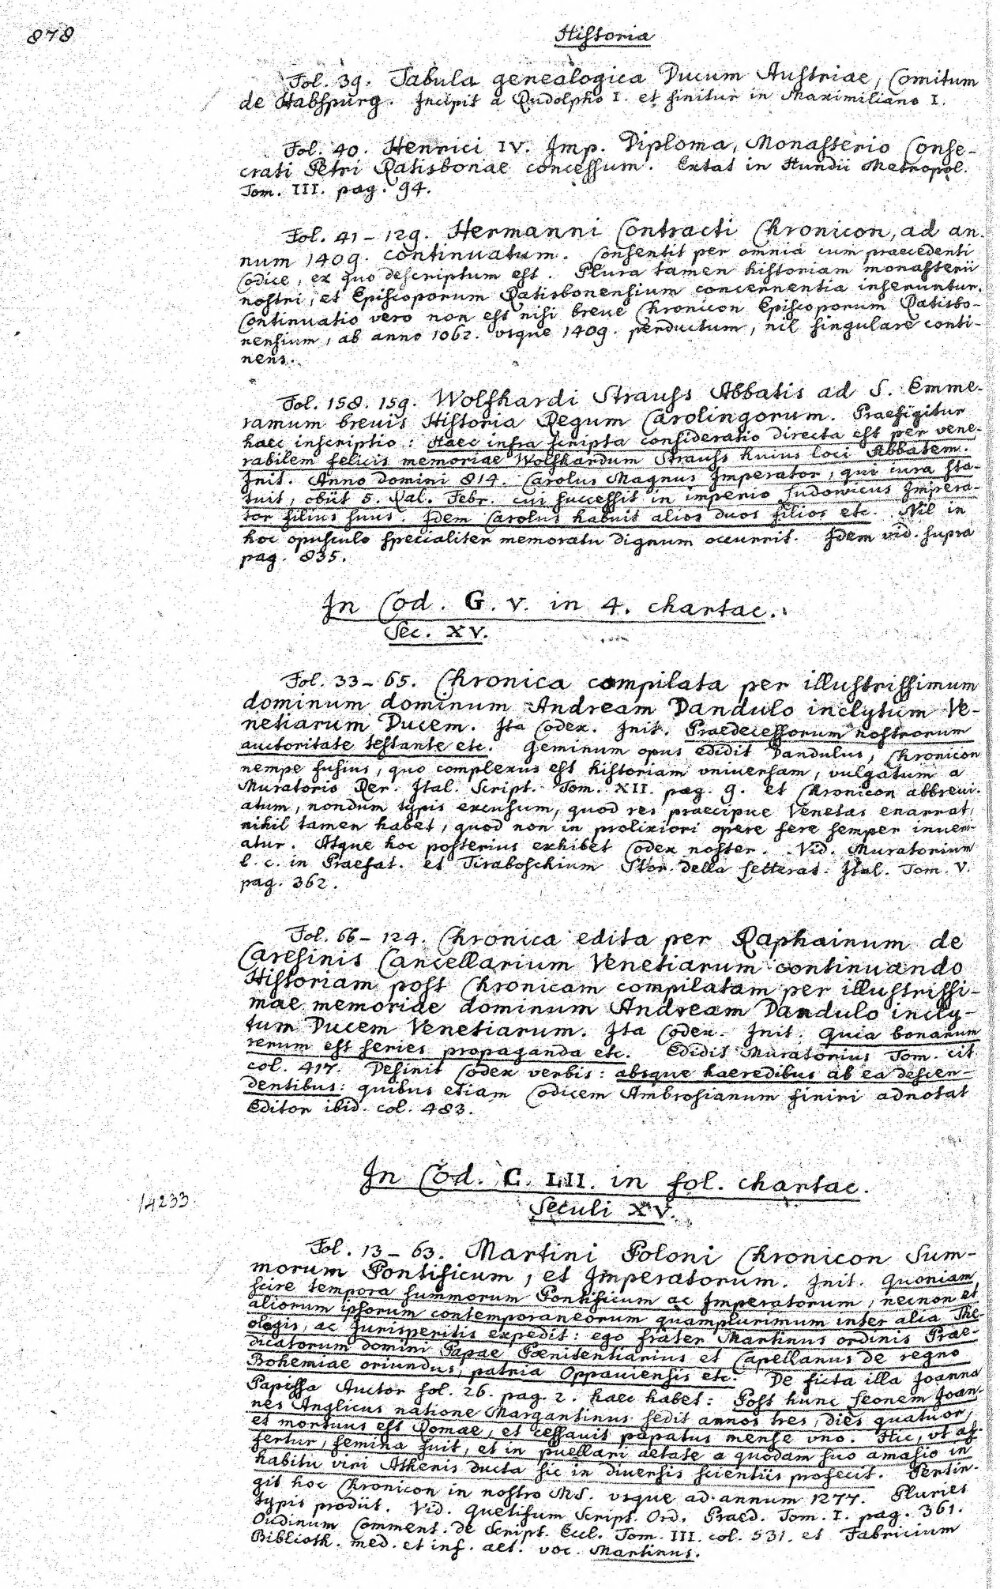 878
Historia
Fol. 39. Tabula genealogica Ducum Austriae, Comitum
de Habspurg. Incipit a Rudolpho I. et finitur in Maximiliano I.
Fol. 40. Henrici IV. Imp. Diploma, Monasterio Conse-
crati Petri Ratisbonae concessum. Extat in Hundii Metropol.
Tom. III. pag. 94.
Fol. 41–129. Hermanni Contracti Chronicon, ad an-
num 1409. continuatum. Consentit per omnia cum praecedenti
Codice, ex quo descriptum est. Plura tamen historiam monasterii
nostri, et Episcoporum Ratisbonensium concernentia inseruntur.
Continuatio vero non est nisi breve Chronicon Episcoporum Ratisbo-
nensium, ab anno 1062. vsque 1409. perductum, nil singulare conti-
nens.
Fol. 158. 159. Wolfhardi Strauss Abbatis ad S. Emme-
ramum brevis Historia Regum Carolingorum. Praefigitur
haec inscriptio: Haec infra scripta consideratio directa est per vene-
rabilem felicis memoriae Wolfhardum Strauss huius loci Abbatem.
Init. Anno domini 814. Carolus Magnus Imperator, qui iura sta-
tuit, obiit 5. Kal. Febr. cui successit in imperio Ludowicus Impera-
tor filius suus. Idem Carolus habuit alios duos filios etc. Nil in
hoc opusculo specialiter memoratu dignum occurrit. Idem vid. supra
pag. 835.
In Cod. G. V. in 4. chartac.
Sec. XV.
Fol. 33–65. Chronica compilata per illustrissimum
dominum dominum Andream Dandulo inclytum Ve-
netiarum Ducem. Ita Codex. Init. Praedecessorum nostrorum
auctoritate testante etc. Geminum opus edidit Dandulus, Chronicon
nempe fusius, quo complexus est historiam vniuersam, vulgatum a
Muratorio Rer. Ital. Script. Tom. XII. pag. 9. et Chronicon abbrevi-
atum, nondum typis excusum, quod res praecipue Venetas enarrat,
nihil tamen habet, quod non in prolixiori opere fere semper inueni-
atur. Atque hoc posterius exhibet Codex noster. Vid. Muratorium
l. c. in Praefat. et Tiraboschium Stor. della Letterat. Ital. Tom. V.
pag. 362.
Fol. 66–124. Chronica edita per Raphainum de
Caresinis Cancellarium Venetiarum continuando
Historiam post Chronicam compilatam per illustrissi-
mae memoriae dominum Andream Dandulo incly-
tum Ducem Venetiarum. Ita Codex. Init. Quia bonarum
rerum est series propaganda etc. Edidit Muratorius Tom. cit.
col. 417. Definit Codex verbis: absque haeredibus ab ea descen-
dentibus: quibus etiam Codicem Ambrosianum finiri adnotat
Editor ibid. col. 483.
In Cod. C. LII. in fol. chartac.
Seculi XV.
14233.
Fol. 13–63. Martini Poloni Chronicon Sum-
morum Pontificum, et Imperatorum. Init. Quoniam
scire tempora summorum Pontificum ac Imperatorum, necnon et
aliorum ipsorum contemporaneorum quamplurimum inter alia The-
ologis, ac Jurisperitis expedit: ego frater Martinus ordinis Prae-
dicatorum domini Papae Poenitentiarius et Capellanus de regno
Bohemiae oriundus, patria Oppauiensis etc. De ficta illa Joanna
Papissa Auctor fol. 26. pag. 2. haec habet: Post hunc Leonem Joan-
nes Anglicus natione Margantinus sedit annos tres, dies quatuor,
et mortuus est Romae, et cessauit papatus mense vno. Hic, vt as-
sertur, femina fuit, et in puellari aetate a quodam suo amasio in
habitu viri Athenis ducta sic in diuersis scientiis profecit. Pertin-
git hoc Chronicon in nostro MS. vsque ad annum 1277. Pluries
typis prodiit. Vid. Quetifum Script. Ord. Praed. Tom. I. pag. 361.
Oudinum Comment. de Script. Eccl. Tom. III. col. 531. et Fabricium
Biblioth. med. et inf. aet. voc. Martinus.